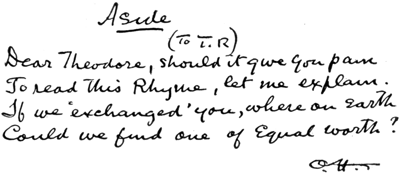 Aside
(To T.R)
Dear Theodore, should it give you pain
To read this Rhyme, let me explain.
If we 'exchanged' you, where on Earth
Could we find one of Equal worth?
O.H.